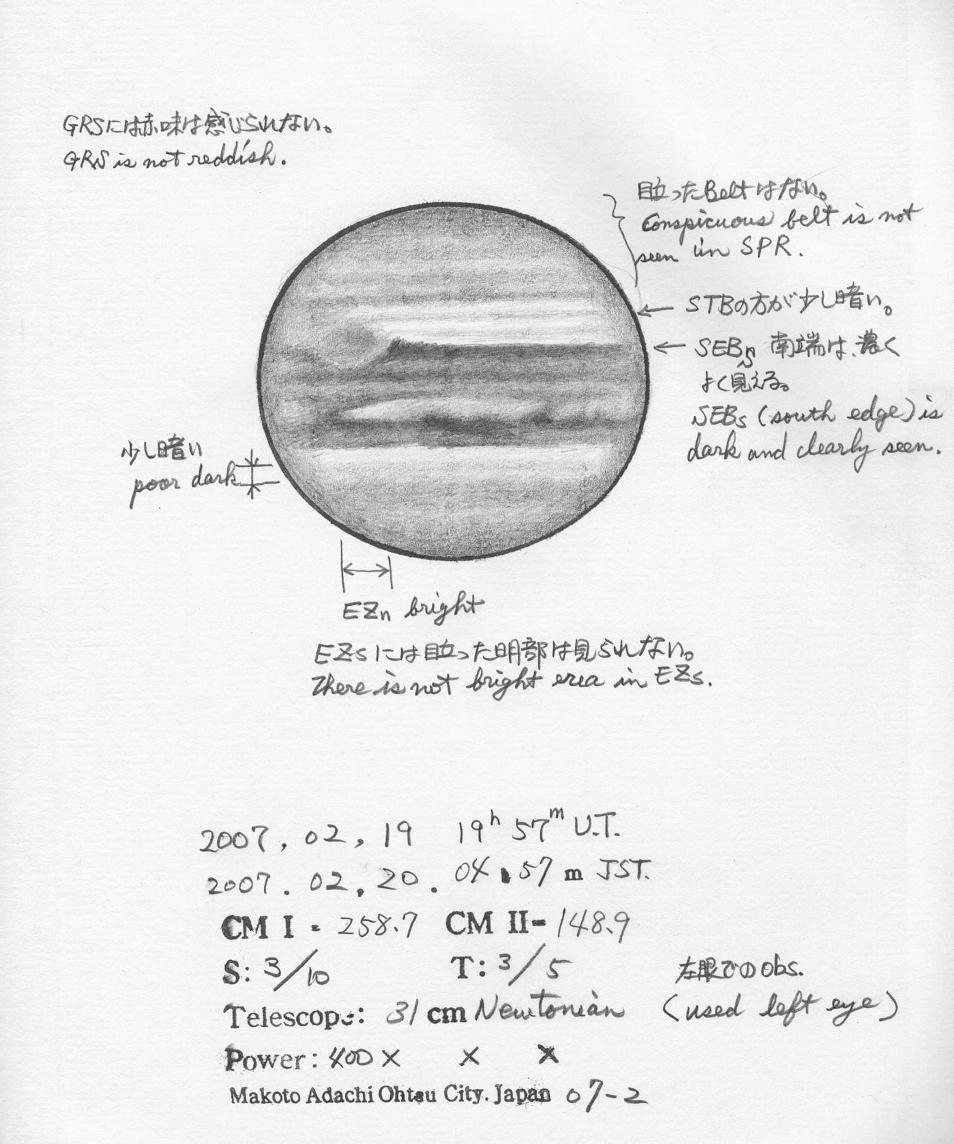 GRSには赤味は感じられない。
GRS is not reddish.
目立ったBeltはない。
Conspicuous belt is not
seen in SPR.
STBの方が少し暗い。
SEBs 南端は、濃く
よく見える。
SEBs (south edge) is
dark and clearly seen.
少し暗い
poor dark
EZn bright
EZsには目立った明部は見られない。
There is not bright erea in EZs.
2007, 02, 19 19h 57m U.T.
2007. 02, 20. 04 57 m JST.
CM I - 258.7 CM II- 148.9
S: 3/10 T: 3/5
左眼でのobs.
Telescope: 31 cm Newtonian
(used left eye)
Power: 400 × × ×
Makoto Adachi Ohtsu City. Japan 07-2